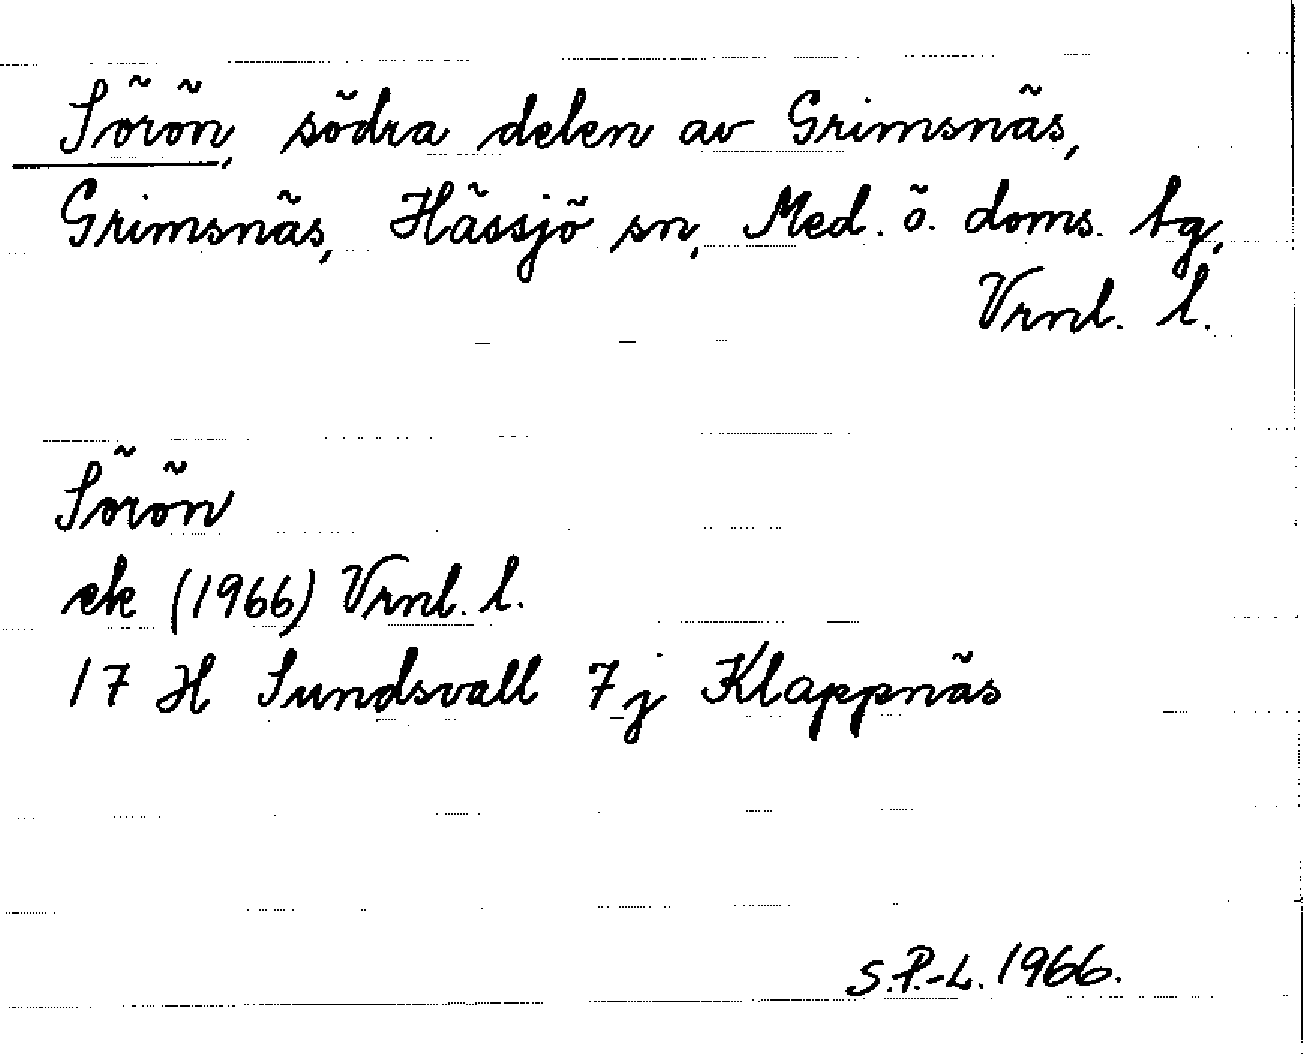 Sörön, södra delen av Grimsnäs,
Grimsnäs, Hässjö sn, Med. ö. doms. tg,
Vrnl. l.
Sörön
ek (1966) Vrnl. l.
17 H Sundsvall 7j Klappnäs
S.P.-L. 1966.